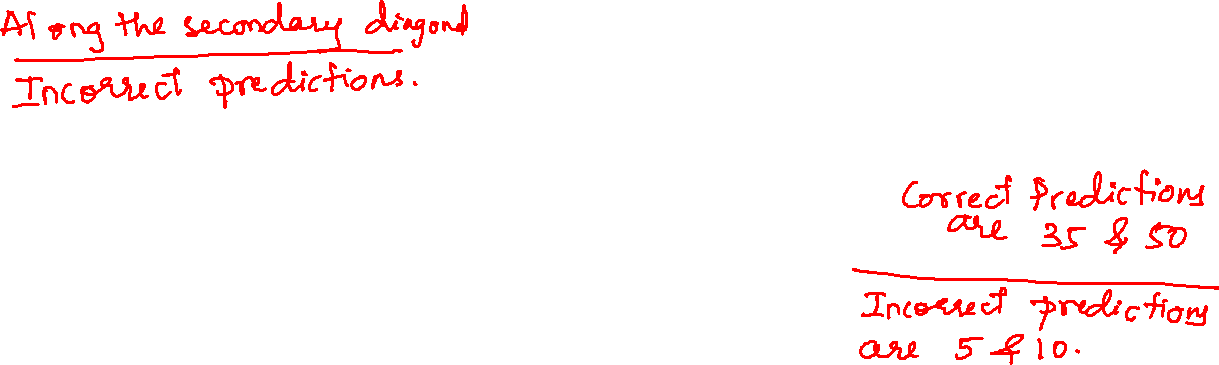 Along the secondary diagonal
Incorrect predictions.
Correct Predictions
are 35 & 50
Incorrect predictions
are 5 & 10.